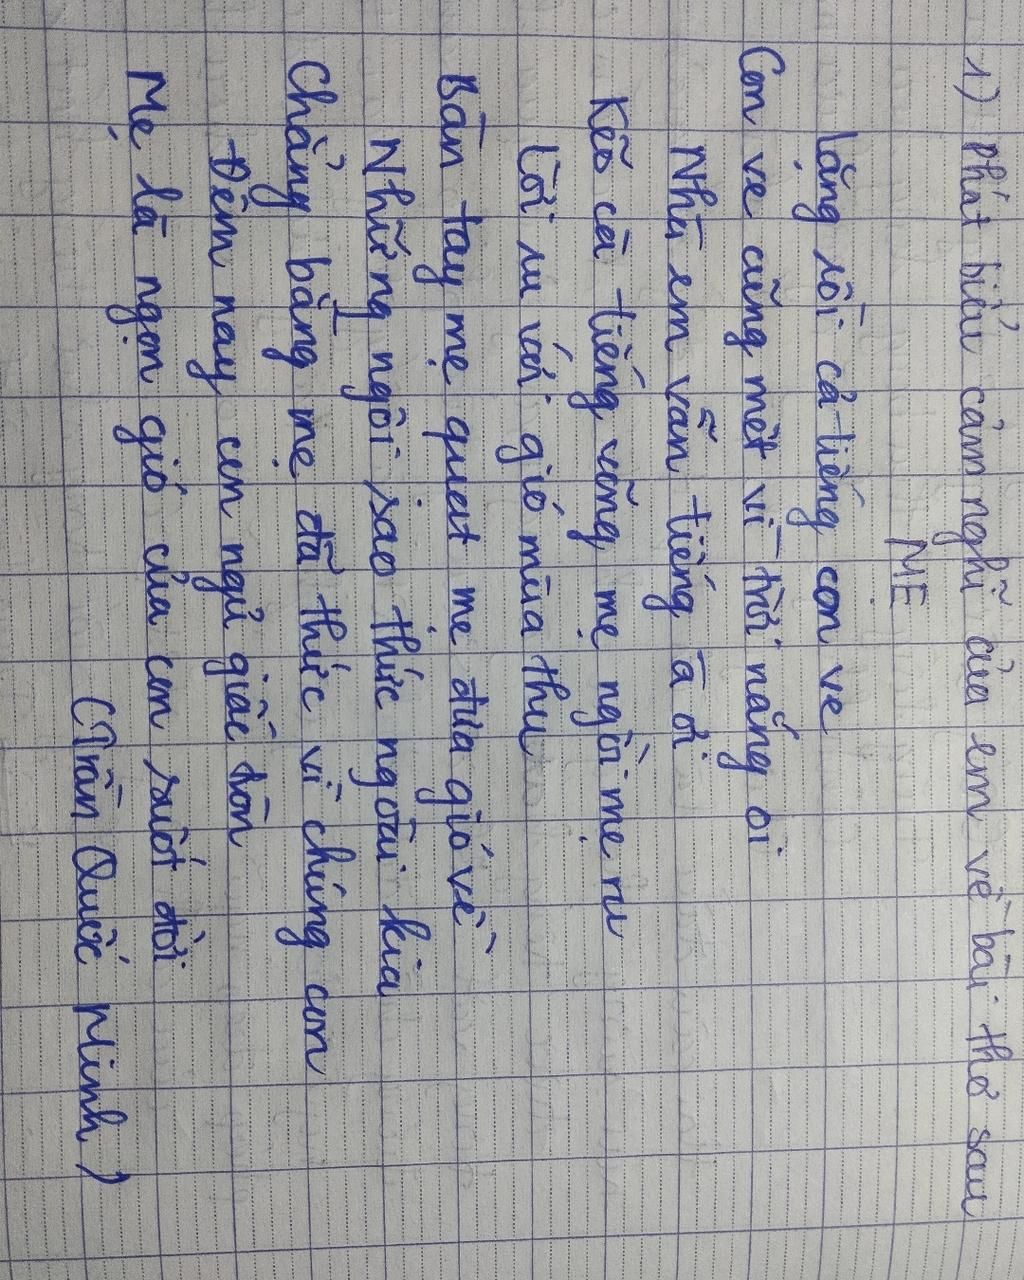 1) Phát biểu cảm nghĩ của em về bài thơ sau
MẸ
Lặng rồi cả tiếng con ve
Con ve cũng mệt vì trời nắng oi
Nhà em vẫn tiếng à ơi
Kẽo cà tiếng võng mẹ ngồi mẹ ru
Lời ru với gió mùa thu
Bàn tay mẹ quạt mẹ đưa gió về
Những ngôi sao thức ngoài kia
Chẳng bằng mẹ đã thức vì chúng con
Đêm nay con ngủ giấc tròn
Mẹ là ngọn gió của con suốt đời
(Trần Quốc Minh)